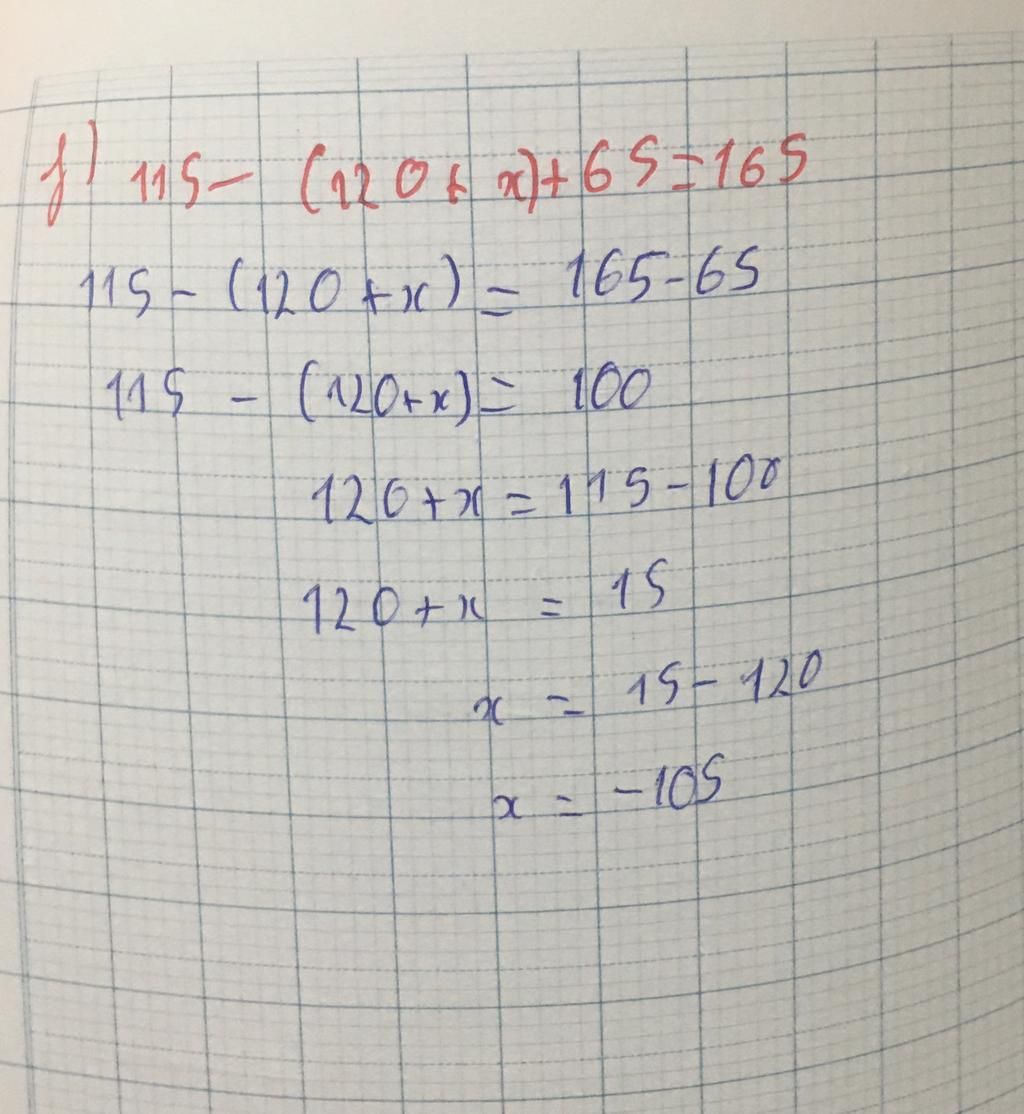 f) 115 - (120 + x) + 65 = 165
115 - (120 + x) = 165 - 65
115 - (120 + x) = 100
120 + x = 115 - 100
120 + x = 15
x = 15 - 120
x = -105